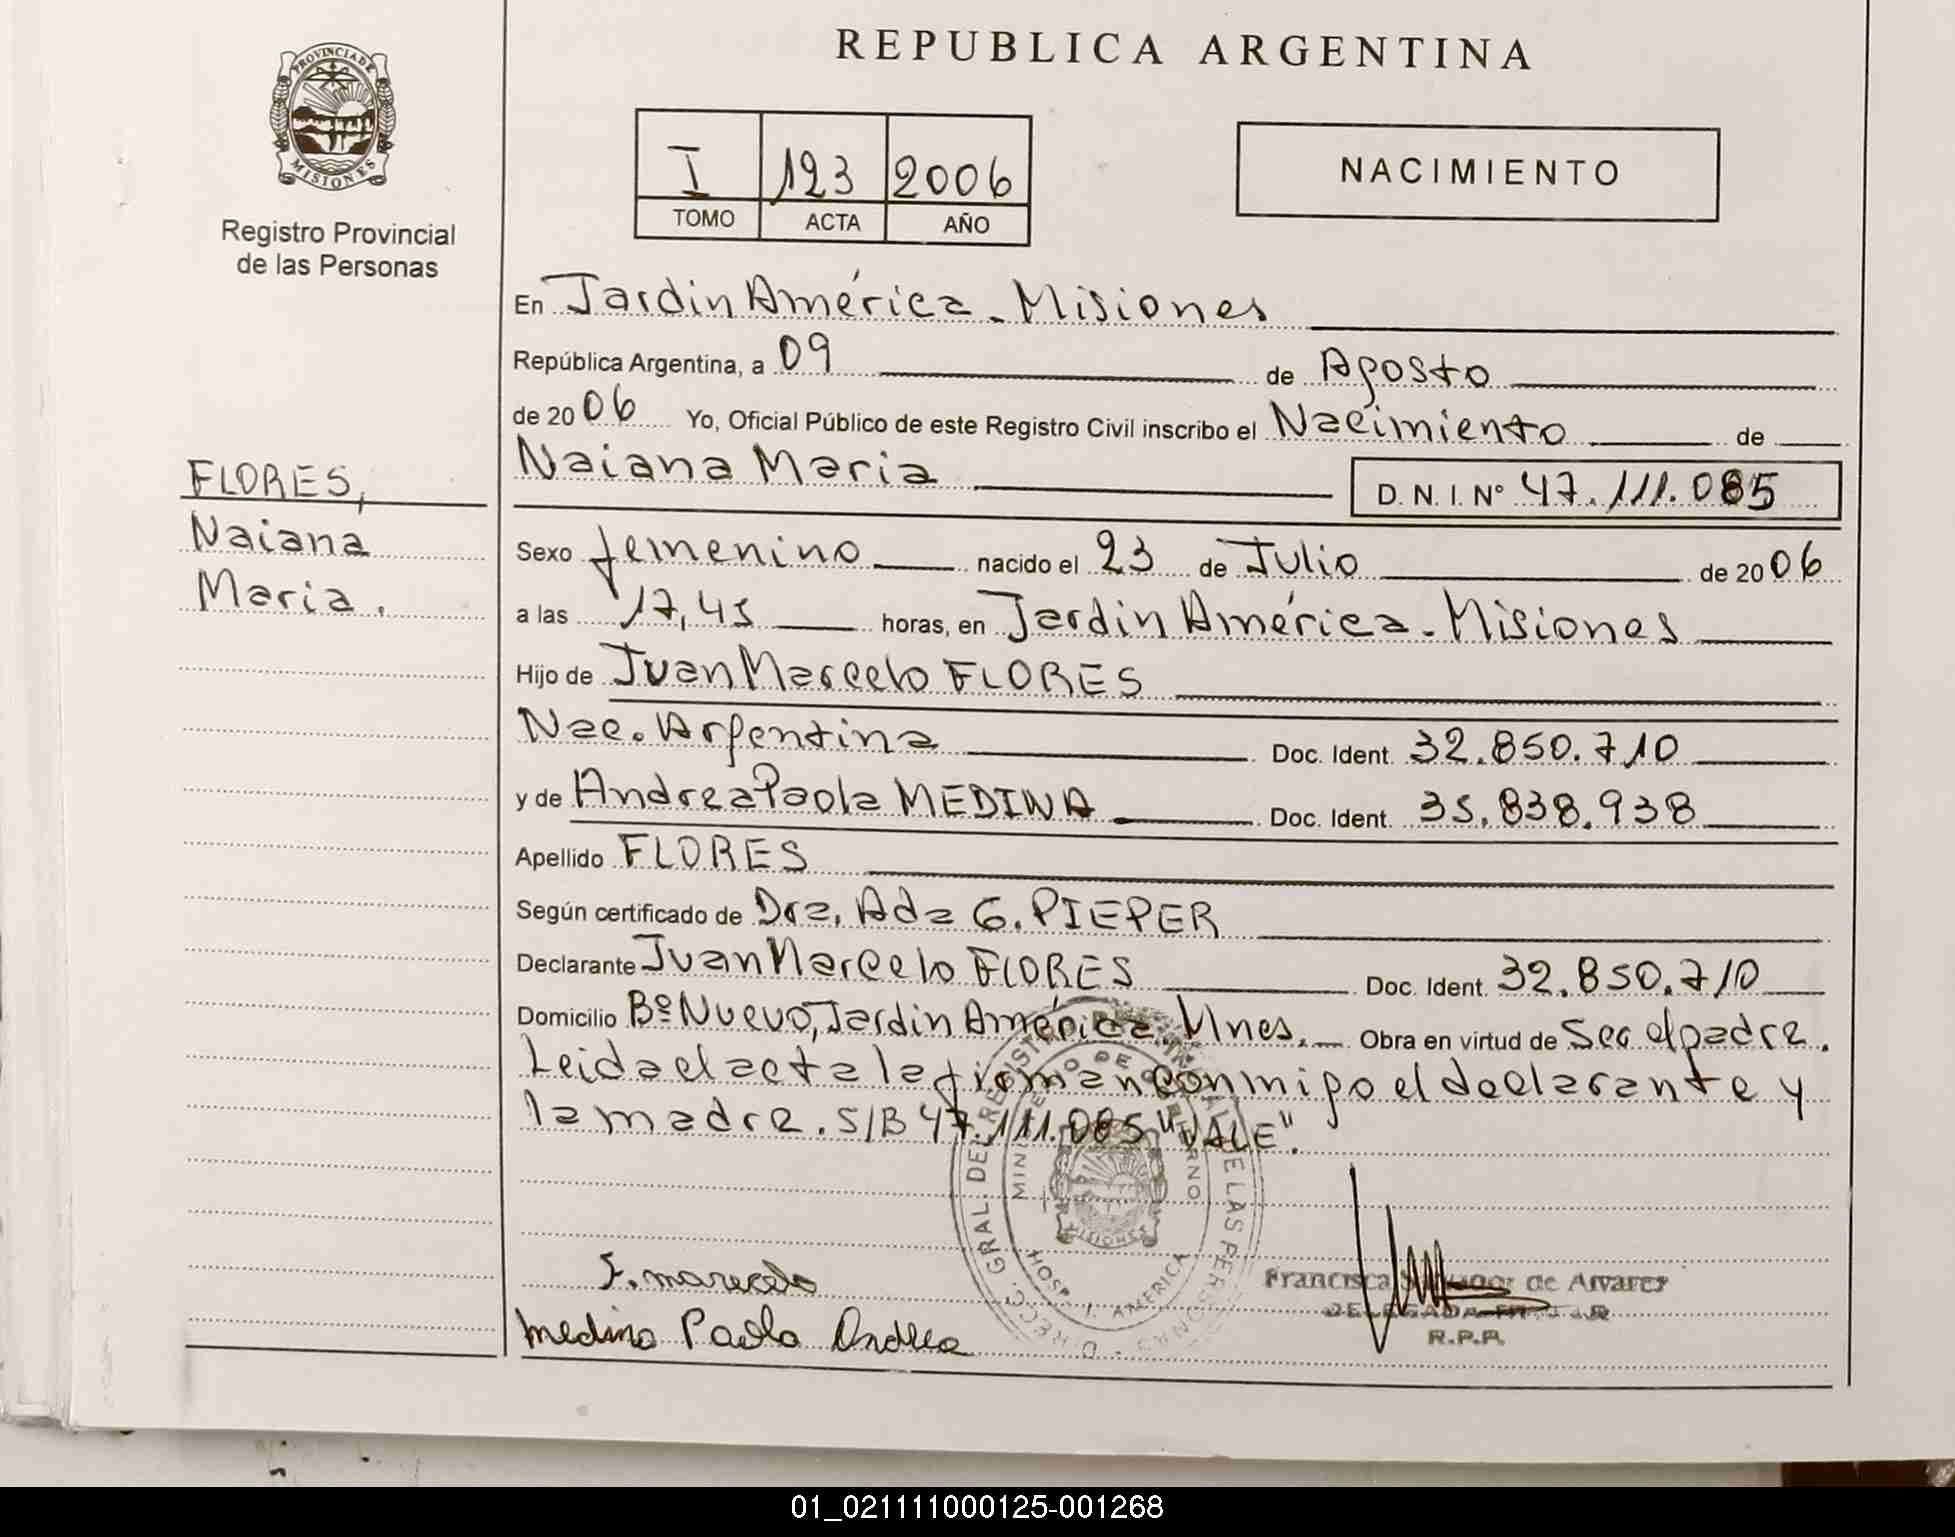 REPUBLICA ARGENTINA
PROVINCIA DE MISIONES
Registro Provincial
de las Personas
I 123 2006
TOMO ACTA AÑO
NACIMIENTO
En Jardin América - Misiones
República Argentina, a 09 de Agosto
de 2006 Yo, Oficial Público de este Registro Civil inscribo el Nacimiento de
Naiana Maria D. N. I. N° 47.111.085
FLORES,
Naiana
Maria.
Sexo femenino nacido el 23 de Julio de 2006
a las 17,45 horas, en Jardin América - Misiones
Hijo de Juan Marcelo FLORES
Nac. Argentina Doc. Ident. 32.850.710
y de Andrea Paola MEDINA Doc. Ident. 35.838.938
Apellido FLORES
Según certificado de Dra. Ada G. PIEPER
Declarante Juan Marcelo FLORES Doc. Ident. 32.850.710
Domicilio Bº Nuevo, Jardin América. Mnes. Obra en virtud de Ser el padre.
Leida el acta la firman conmigo el declarante y
la madre. S/B 47.111.085 "VALE".
DIRECC. GRAL. DEL REGISTRO DE LAS PERSONAS
MINISTERIO DE GOBIERNO
MISIONES
HOSP. J. AMERICA
F. marcelo
Medina Paola Andrea
Francisca de Alvarez
DELEGADA
R.P.P.
01_021111000125-001268